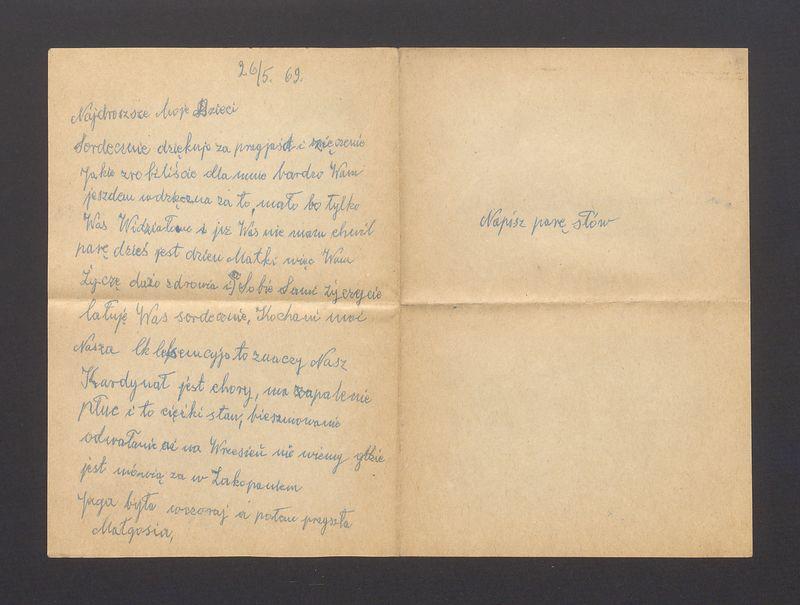 26/5. 69.
Najdroższe Moje Dzieci
Serdecznie dziękuje za przyjazd i
Jakie zrobiliście dla mnie bardzo Wam
jezdem wdzięczna za to, mało bo tylko
Was Widziałam i już Was nie mam chwil
parę dzieś jest dzień Matki więc Wam
Życzę dużo zdrowia i Sobie Sami życzycie
Całuję Was serdecznie, Kochani moi
Nasza to znaczy Nasz
Kardynał jest chory, ma zapalenie
płuc i to ciężki stan, bieszmowanie
odwołanie aż na Wrzesień nie wiemy gdzie
jest mówią za w Zakopanem
Jaga była wczoraj a potem przyszła
Małgosia,
Napisz parę słów